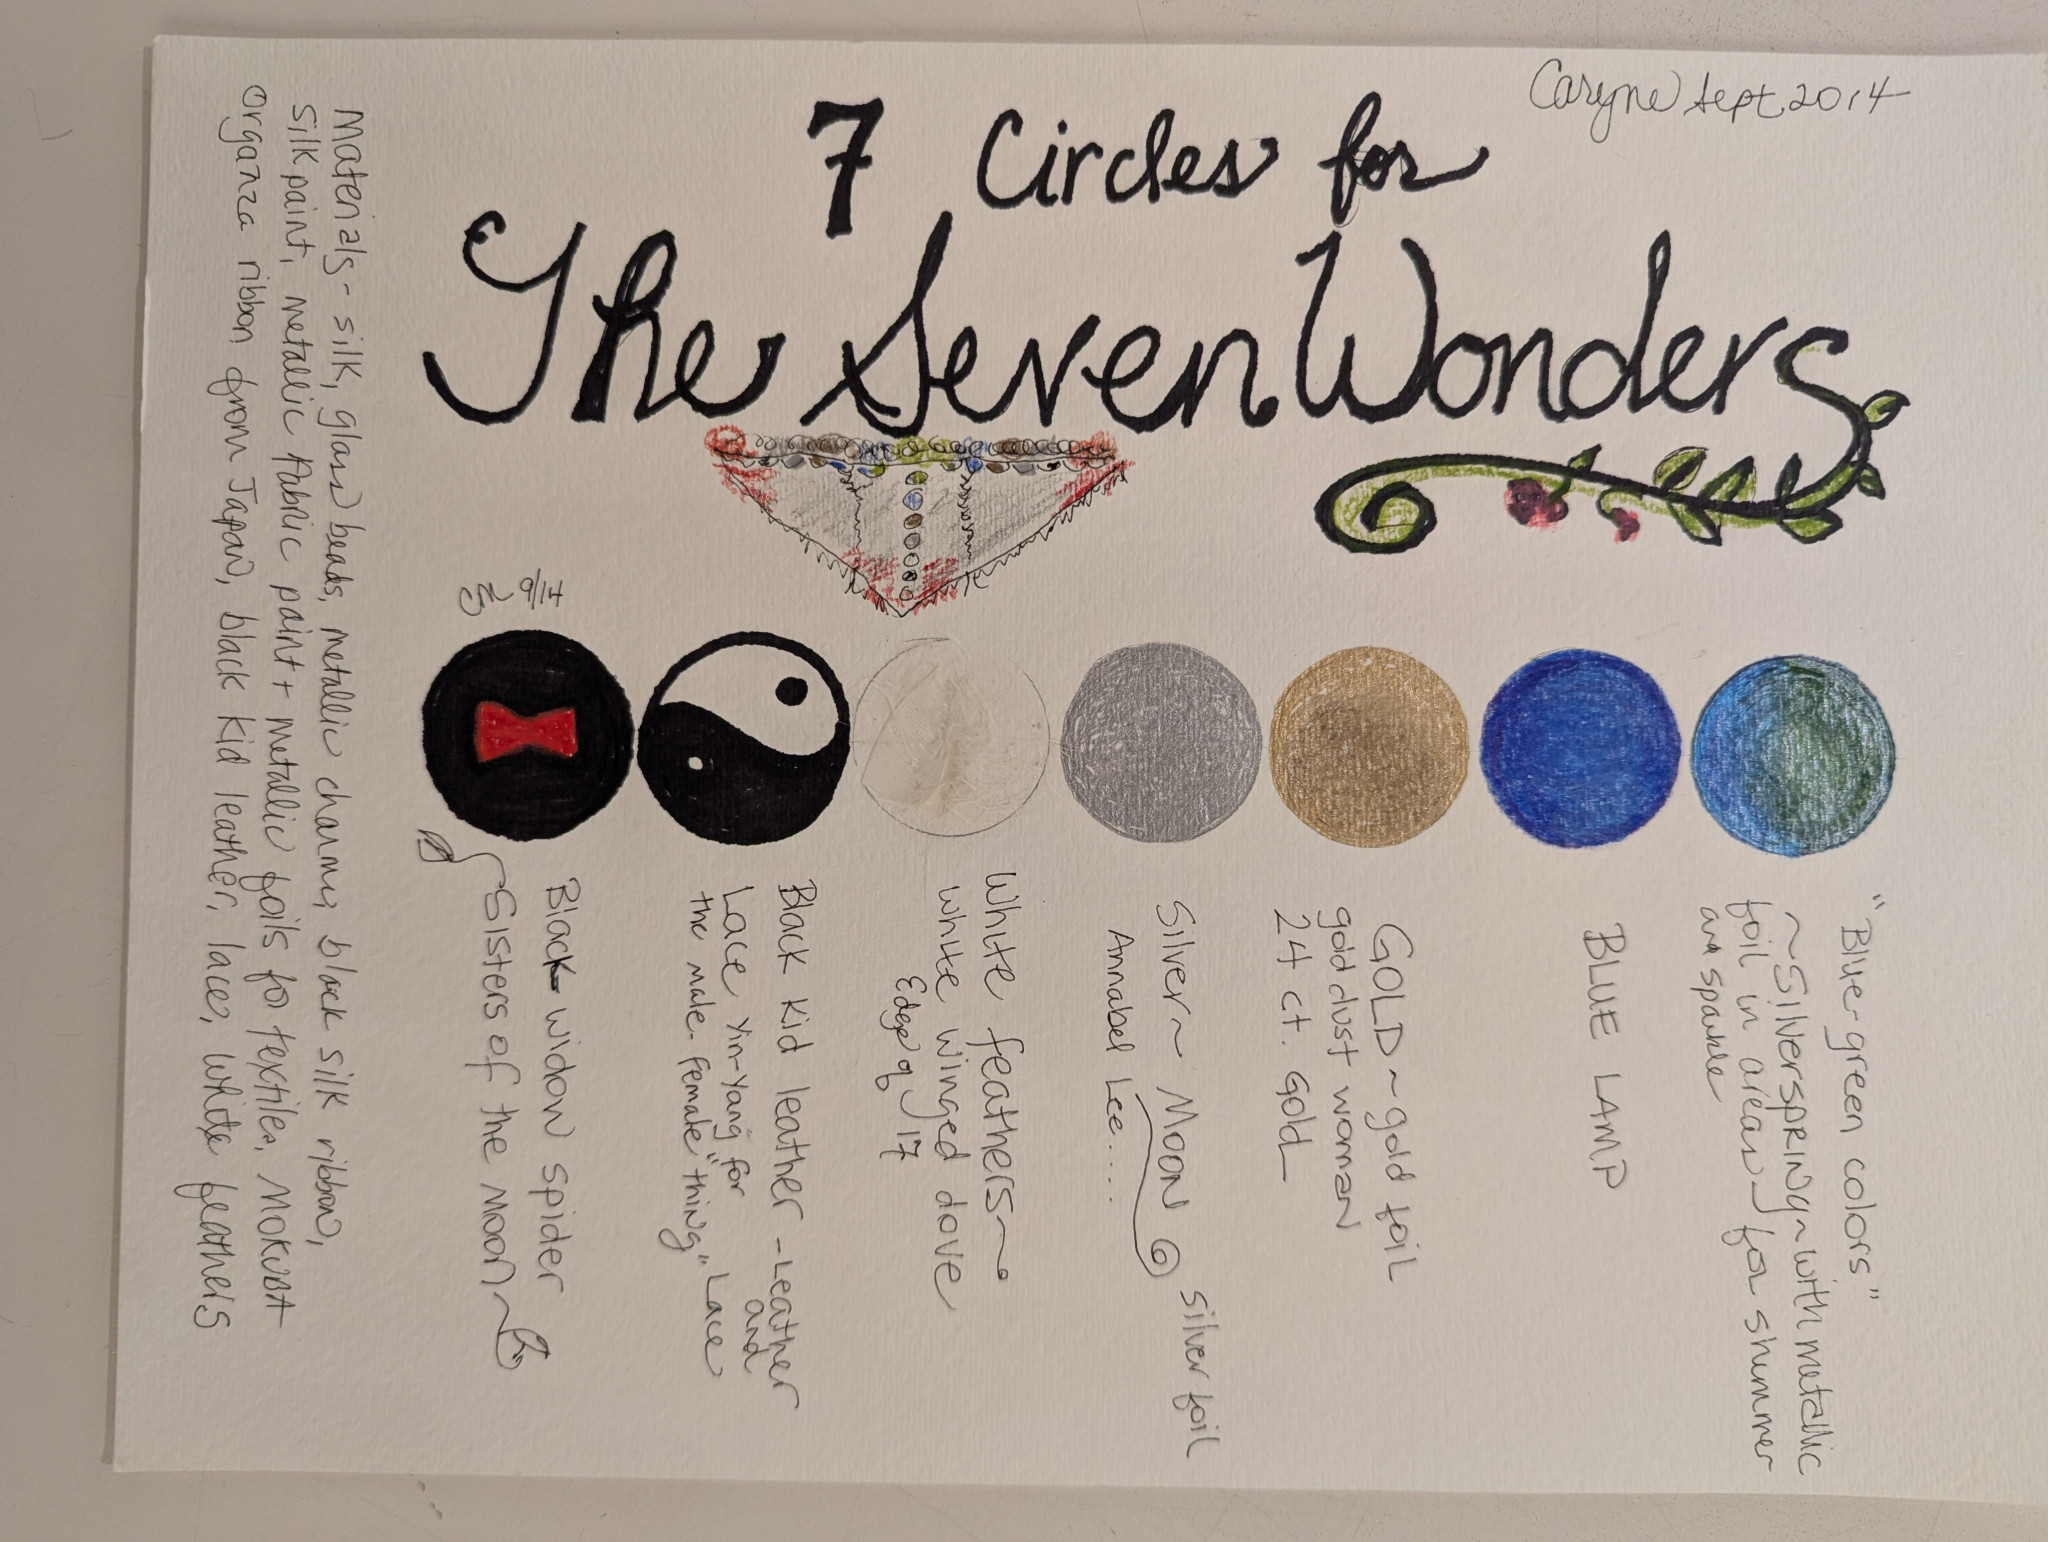 Caryne Sept 2014
7 Circles for
The Seven Wonders
9/14
Black widow spider
Sisters of the Moon
Black kid leather - Leather
and
Lace Yin-Yang for
the male-female "thing" Lace
White feathers~
White winged dove
Edge of 17
Silver~ Moon silver foil
Annabel Lee....
GOLD~gold foil
gold dust woman
24 ct. Gold
BLUE LAMP
"Blue-green colors"
~Silverspring~with metallic
foil in areas for shimmer
and sparkle
Materials - silk, glass beads, metallic charms, black silk ribbon,
silk paint, metallic fabric paint + metallic foils for textiles, MOKUBA
Organza ribbon from Japan, black kid leather, lace, white feathers